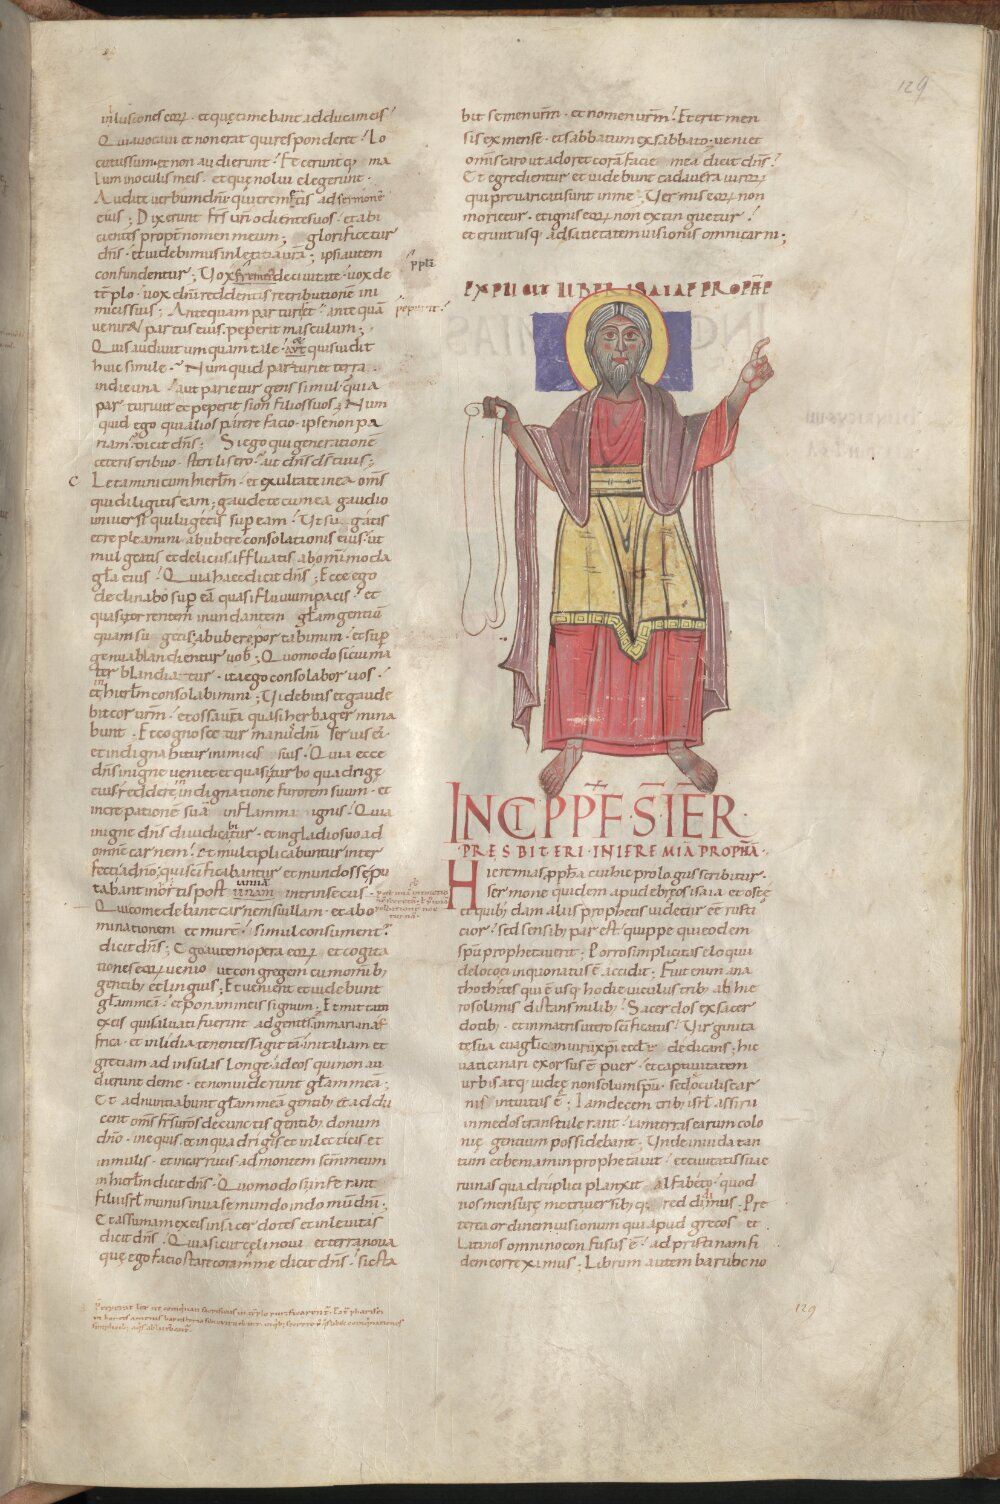 129
inlusiones eorꝝ · et quę timebant adducam eis
Quia vocavi et non erat qui responderet · Lo
cutus sum et non audierunt · Fecerunt q; ma
lum in oculis meis · et quę nolui elegerunt ·
Audite verbum dñi qui tremetis ad sermonē
eius; Dixerunt frs̄ vr̄i odientes vos · et abi
cientes propt̄ nomen meum; glorificetur
dñs · et videbimus in lętitia vr̄a; ipsi autem
confundentur; Vox de civitate · vox de
tēplo · vox dñi reddentis retributionē ini
micis suis; Antequam parturiet · antequā
veniret partus eius · peperit masculum;
Quis audivit umquam tale · aut quis vidit
huic simile · Numquid parturiet terra
in die una · aut parietur gens simul · quia
parturivit et peperit sion filios suos; Num
quid ego qui alios parere facio · ipse non pa
riam · dicit dñs; Si ego qui generationē
ceteris tribuo · sterilis ero · ait dñs dś tuus;
c Letamini cum hierlm̄ · et exultate in ea om̄s
qui diligitis eam; gaudete cum ea gaudio
universi qui lugetis sup eam · Ut sugatis
et repleamini ab ubere consolationis eius · ut
mulgeatis et deliciis affluatis ab omnimoda
gła eius · Quia haec dicit dñs; Ecce ego
declinabo sup eā quasi fluvium pacis · et
quasi torrentem inundantem głam gentiū
quam sugetis; ab ubere portabimini · et sup
genua blandientur vob; Quomodo si cui ma
ter blandiatur · ita ego consolabor vos ·
et in hierlm̄ consolabimini; Videbitis et gaude
bit cor vrm̄ · et ossa vr̄a quasi herba germina
bunt · Et cognoscetur manus dñi servis ei;
et indignabitur inimicis suis · Quia ecce
dñs in igne veniet et quasi turbo quadrigę
eius; reddere in indignatione furorem suum · et
increpationē suā in flamma ignis · Quia
in igne dñs diiudicabitur · et in gladio suo ad
omnē carnem · Et multiplicabuntur inter
fecti a dño; qui sc̄ificabantur et mundos se pu
tabant in hortis post unam intrinsecus ·
Qui comedebant carnem suillam · et abo
minationem et murē · simul consumentꝛ
dicit dñs; Ego autem opera eorꝝ · et cogita
tiones eorꝝ venio ut congregem cum omnib;
gentib; et linguis; Et venient et videbunt
głam meā · et ponam in eis signum; Et mittam
ex eis qui salvati fuerint ad gentes in mari in af
frica · et in lidia tenentes sagittā in italiam et
gretiam ad insulas longe · ad eos qui non au
dierunt de me · et non viderunt głam meā;
Et adnuntiabunt głam meā gentib; et addu
cent om̄s frs̄ vr̄os de cunctis gentib; donum
dño · in equis · et in quadrigis et in lecticis et
in mulis · et in carrucis ad montem scm̄ meum
in hierlm̄ dicit dñs · Quomodo si inferant
filii isrl̄ munus in vase mundo in domū dñi;
Et assumam ex eis in sacerdotes et in levitas
dicit dñs · Quia sicut cęli novi et terra nova
quę ego facio stare coram me dicit dñs · sic sta
pplā
peperit
bit semen vrm̄ · et nomen vrm̄ · Et erit men
sis ex mense · et sabbatum ex sabbato · veniet
omnis caro ut adoret corā facie mea dicit dñs ·
Et egredientur et videbunt cadavera virorꝝ
qui prevaricati sunt in me · Vermis eorꝝ non
morietur · et ignis eorꝝ non extinguetur ·
et erunt usq; ad satietatem visionis omni carni;
EXPLICIT LIBER ISAIAE PROPHE
INCIP PF S IER
PRESBITERI · IN IEREMIA PROPHA
Hieremias ppħa cui hic prologus scribitur ·
sermone quidem apud hebręos isaia et oseę
et quib; dam aliis prophetis videtur eē rusti
cior · sed sensib; par est · quippe qui eodem
spū prophetaverit · Porro simplicitas eloquii
de loco ei in quo natus ē accidit · Fuit enim ana
thothites qui ē usq; hodie viculus trib; ab hie
rosolimis distans milib; Sacerdos ex sacer
dotib; · et in matris utero sc̄ificatus · Virginita
te sua evaglicam virū xpi ecclę dedicans; hic
vaticinari exorsus ē puer · et captivitatem
urbis atq; iudeę non solum spū · sed oculis car
nis intuitus ē; Iam decem trib; isrl̄ assirii
in medos transtulerant · iam terras earum colo
nię gentium possidebant; Unde in iuda tan
tum et beniamin prophetavit · et civitatis suae
ruinas quadruplici planxit alfabeto · quod
nos mensurę metri versib; q; reddidimus · Pre
terea ordinem visionum qui apud grecos et
Latinos omnino confusus ē · ad pristinam fi
dem correximus; Librum autem baruhc no
129